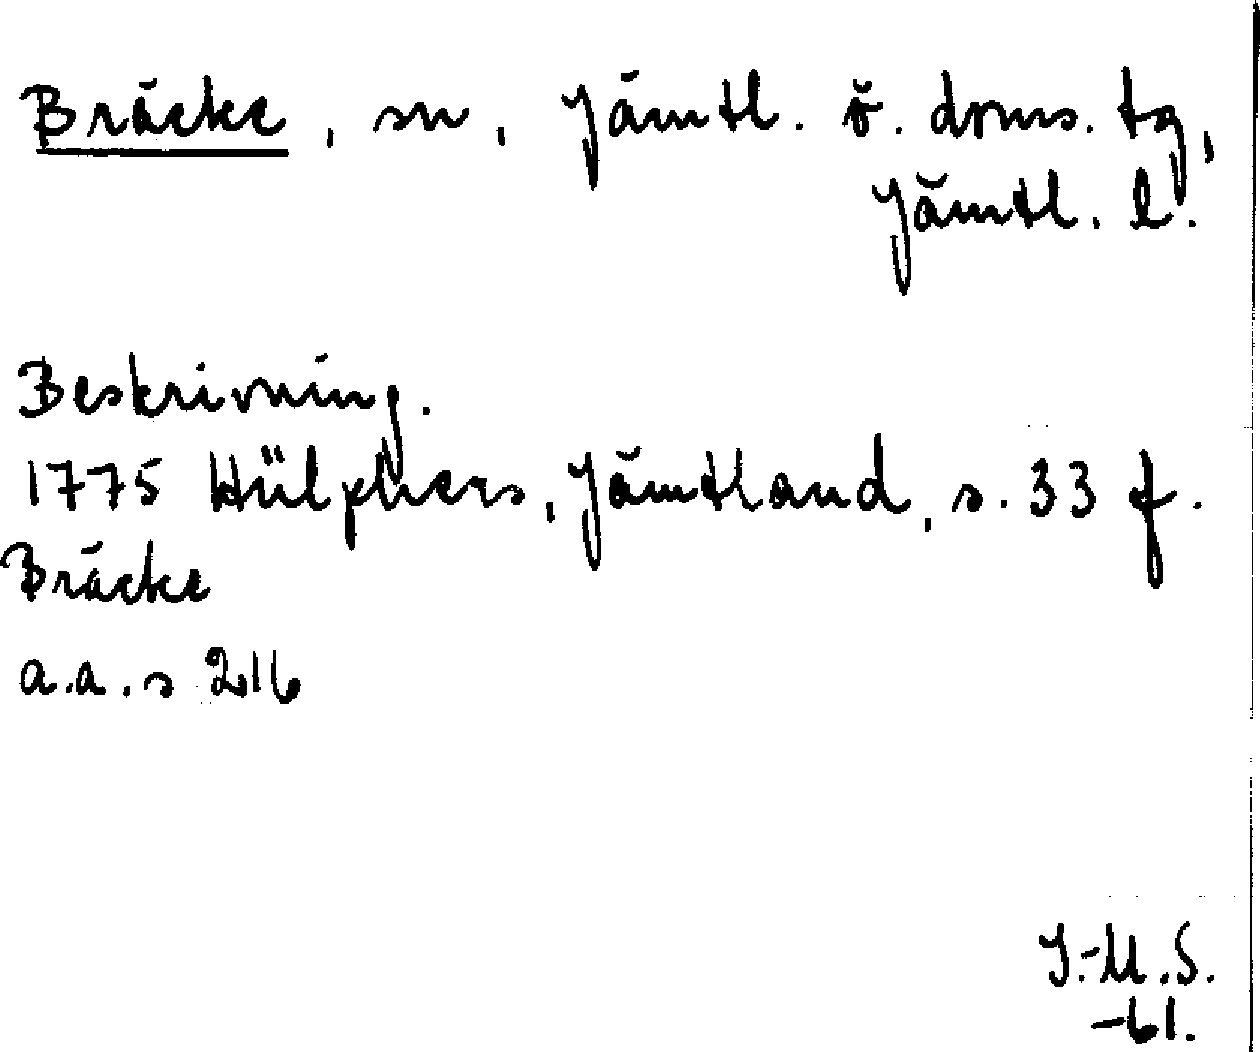 Bräcke, sn, Jämtl. ö. doms. tg,
Jämtl. l.
Beskrivning.
1775 Hülphers, Jämtland, s. 33 f.
Bräcke
a.a. s 216
I.-M.S.
-61.